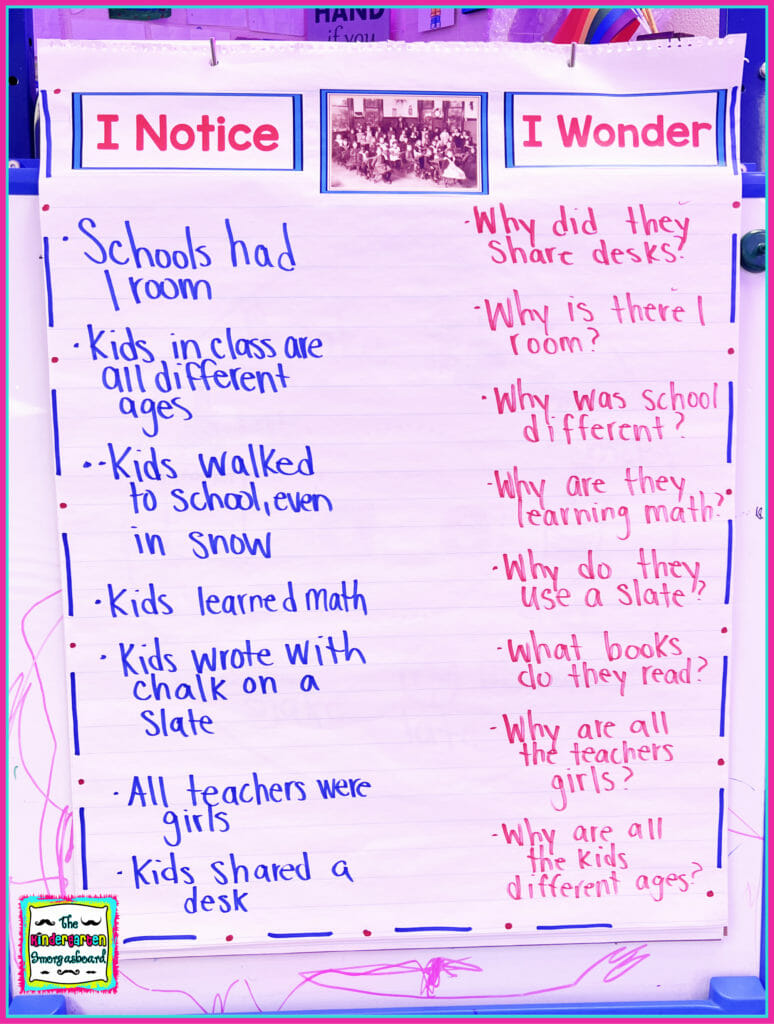 HAND
if you
I Notice
I Wonder
· Schools had
1 room
· Kids in class are
all different
ages
·· Kids walked
to school, even
in snow
· Kids learned math
· Kids wrote with
chalk on a
slate
· All teachers were
girls
· Kids shared a
desk
· Why did they
share desks?
· Why is there 1
room?
· Why was school
different?
· Why are they
learning math?
· Why do they
use a slate?
· What books
do they read?
· Why are all
the teachers
girls?
· Why are all
the kids
different ages?
The
Kindergarten
Smorgasboard